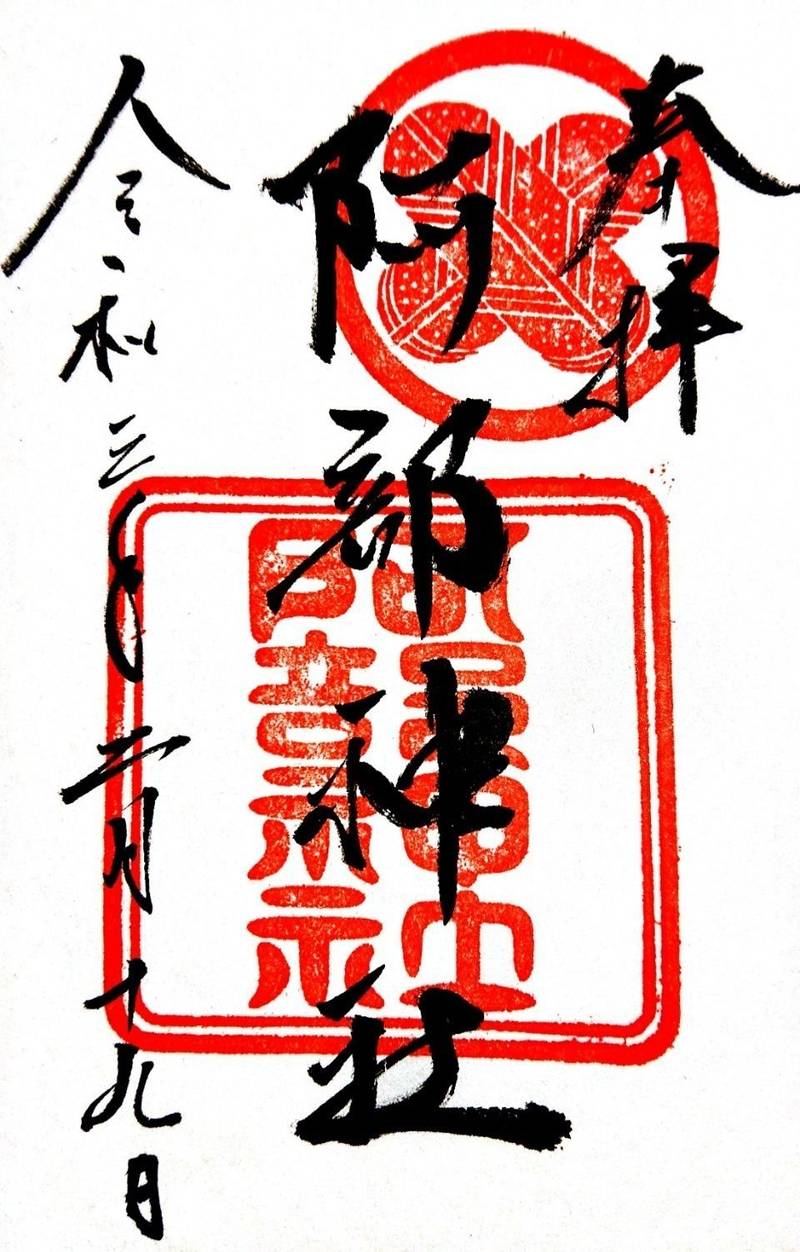 奉拝
阿部神社
阿部神社
令和三年二月十九日